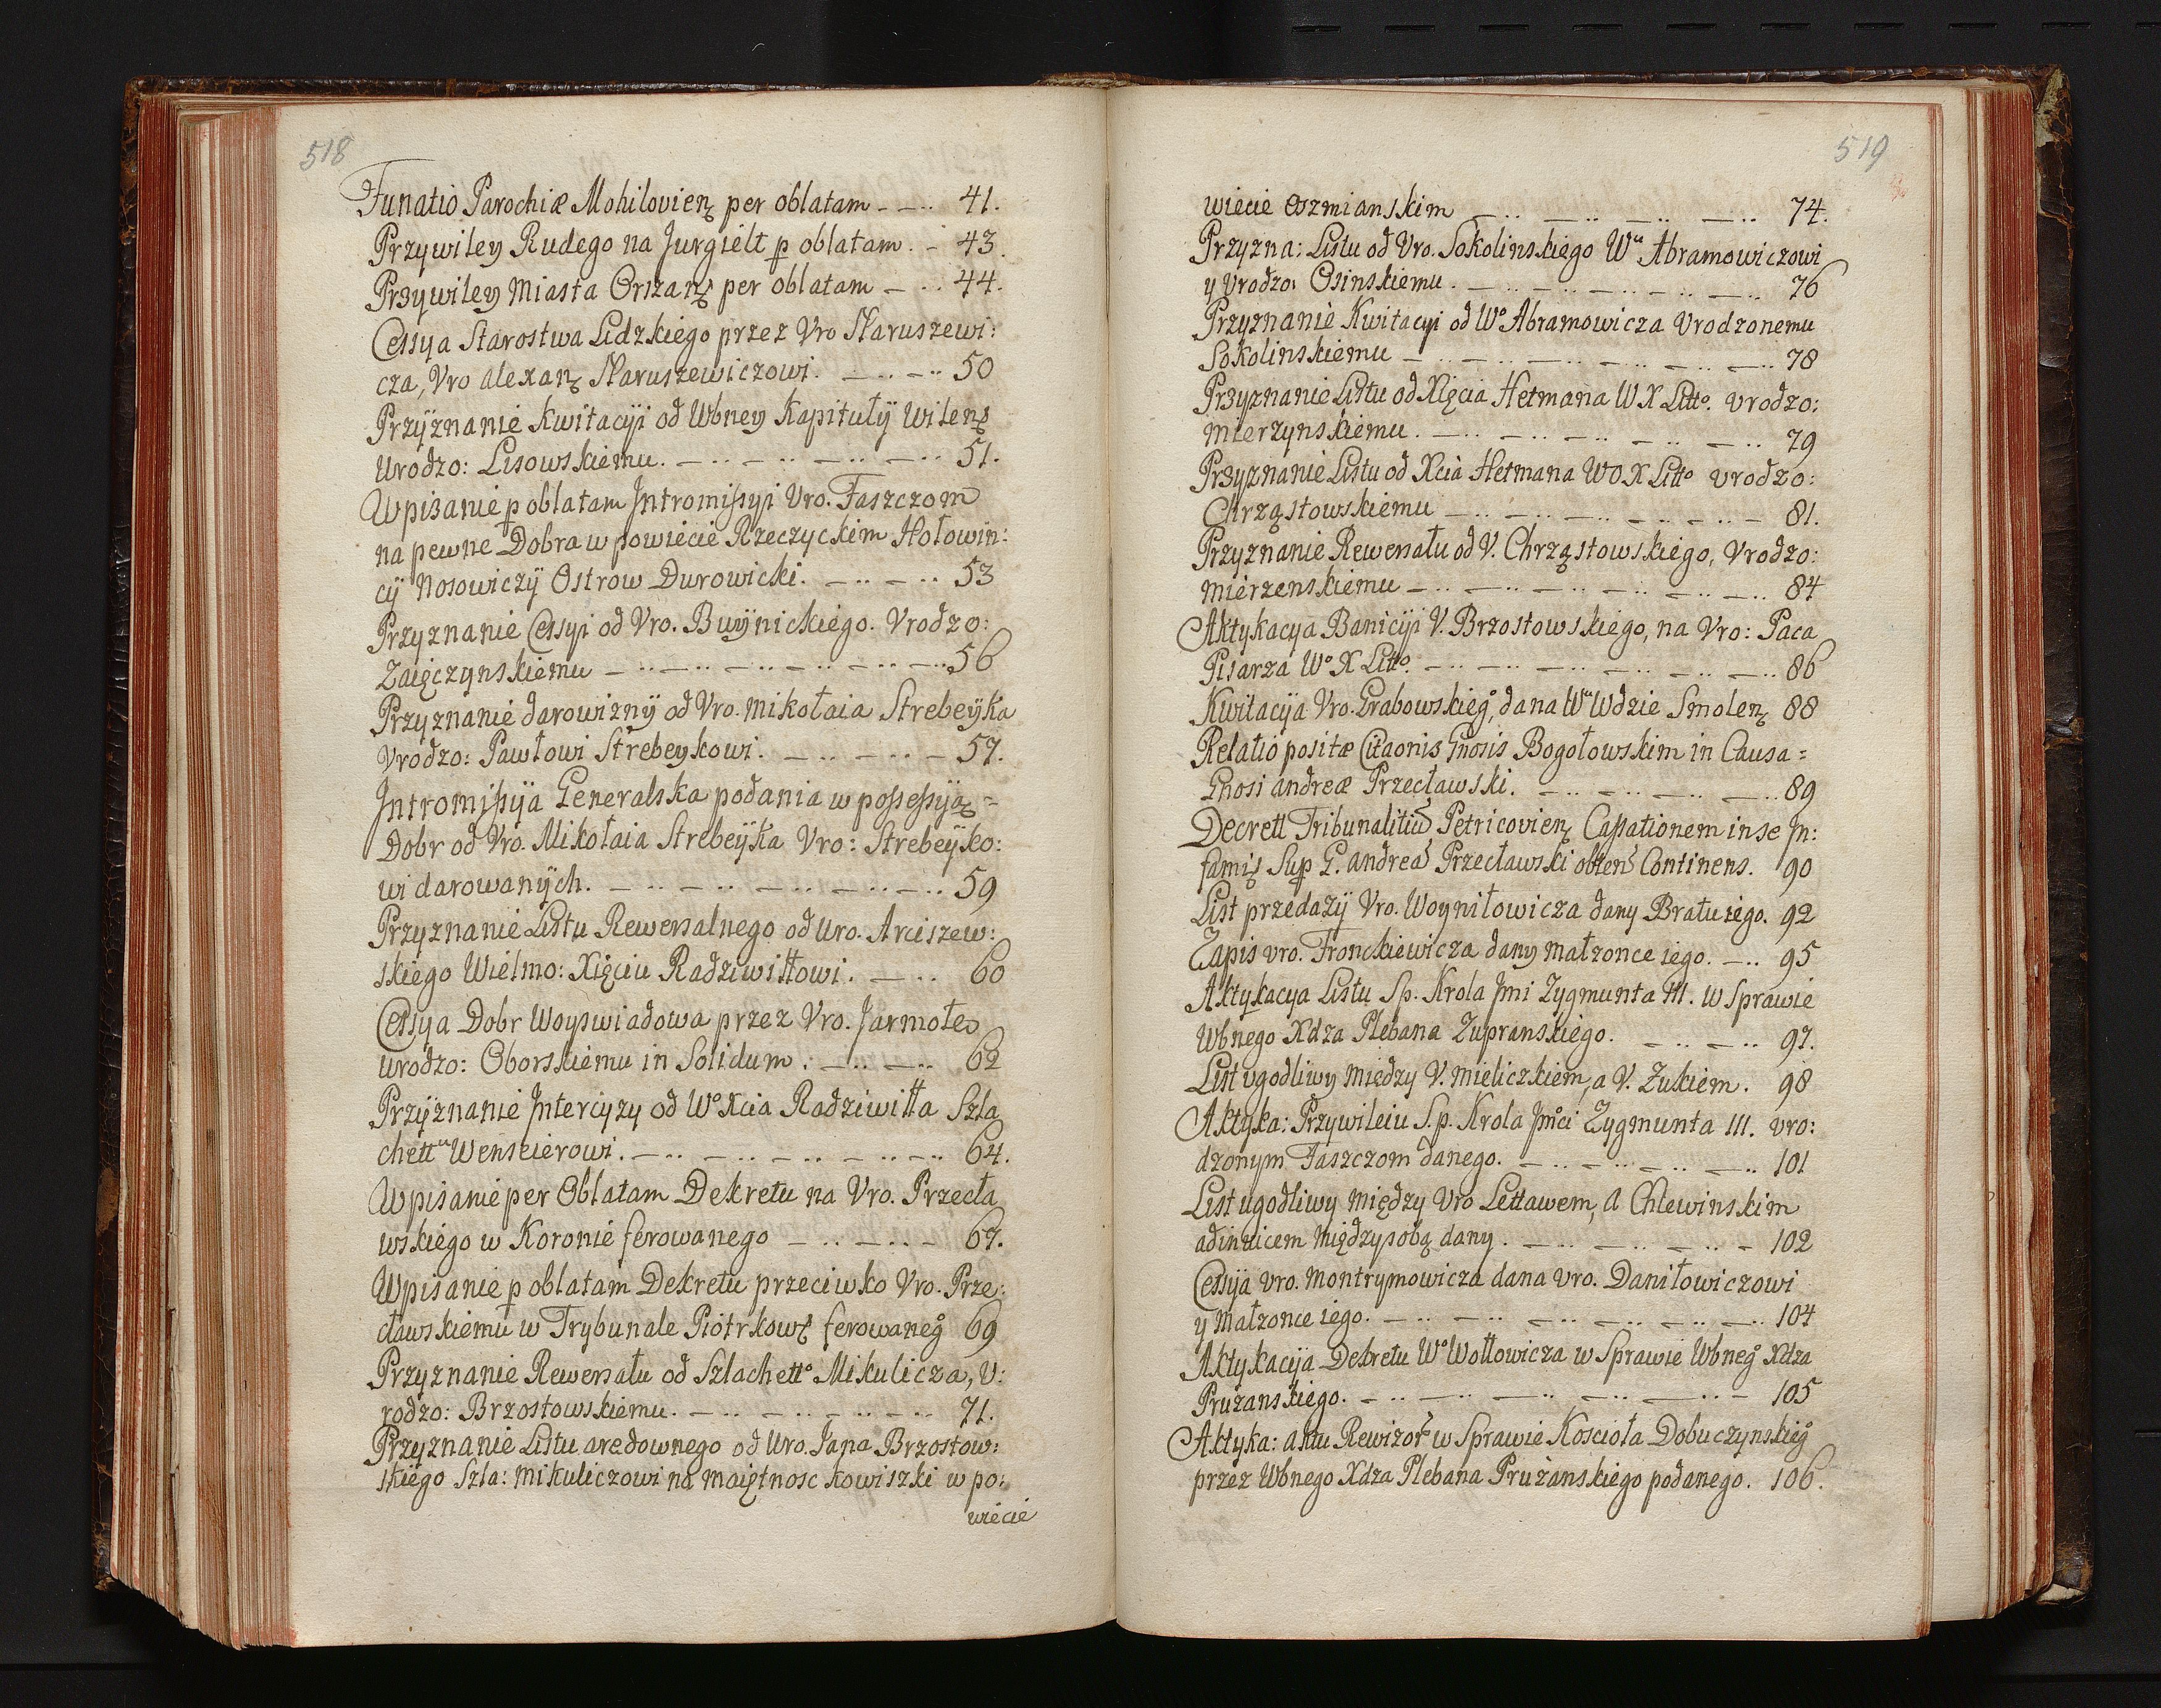 518
Funatio Parochiæ Mohilovienꝫ per oblatam 41.
Przywiley Rudego na Jurgielt p oblatam. 43.
Przywiley Miasta Orszanꝫ per oblatam 44.
Cessya Starostwa Lidzkiego przez Vro Naruszewi:
cza, Vro Alexanꝫ Naruszewiczowi. 50
Przÿznanie Kwitacÿi od Wbney Kapitułÿ Wilenꝫ
Urodzo: Lisowskiemu. 51.
Wpisanie p oblatam Intromissyi Vro. Faszczom
na pewne Dobra w powiecie Rzeczyckim Hołowin:
cÿ Nosowiczÿ Ostrow Durowicki. 53
Przyznanie Cessyi od Vro. Buÿnickiego. Vrodzo:
Zaięczynskiemu 56
Przyznanie darowiznÿ od Vro. Mikołaia Strebeÿka
Vrodzo: Pawłowi Strebeykowi. 57.
Intromissÿa Generalska podania w possessÿą =
Dobr od Vro. Mikołaia Strebeÿka Vro: Strebeÿko:
wi darowanÿch. 59
Przyznanie Listu Rewersalnego od Uro. Arciszew:
skiego Wielmo: Xięciu Radziwiłłowi. 60
Cessya Dobr Woyswiadowa przez Vro. Jarmołę
urodzo: Oborskiemu in Solidum. 62
Przÿznanie Intercyzy od Wº Xcia Radziwiłła Szla
chettᵘ Wenseierowi. 64.
Wpisanie per Oblatam Dekretu na Vro. Przecła
wskiego w Koronie ferowanego 67.
Wpisanie p oblatam Dekretu przeciwko Vro. Prze:
cławskiemu w Trybunale Piotrkowꝫ ferowaneg 69
Przyznanie Rewersału od Szlachettº Mikulicza, V:
rodzo: Brzostowskiemu. 71.
Przyznanie Listu aredownego od Uro. Jana Brzostow:
skiego Szla: Mikuliczowi na maiętnosc Kowiszki w po:
wiecie
519
wiecie Oszmianskim 74.
Przyzna: Listu od Vro. Sokolinskiego Wᵘ Abramowiczowi
y Vrodzo: Osinskiemu. 76
Przyznanie Kwitacyi od Wº Abramowicza Vrodzonemu
Sokolinskiemu 78
Przyznanie Listu od Xięcia Hetmana W X Littº. Vrodzo:
Mierzynskiemu. 79
Przyznanie Listu od Xcia Hetmana WO X Littº Vrodzo:
Chrząstowskiemu 81.
Przyznanie Rewersału od V. Chrząstowskiego, Vrodzo:
Mierzenskiemu 84
Aktykacya Banicÿi V. Brzostowskiego, na Vro: Paca
Pisarza Wº X Littº. 86
Kwitacÿa Vro. Grabowskieg, dana Wᵘ Wdzie Smolenꝫ 88
Relatio positæ Citaonis Gnosis Bogołowskim in Causa =
Gnosi Andreæ Przecławski. 89
Decrett Tribunalitiu Petricovienꝫ Capationem in se In:
famiꝫ Sup G. Andrea Przecławski obten Continens. 90
List przedazÿ Vro. Woyniłowicza dany Bratu iego. 92
Zapis Vro. Fronckiewicza dany małzonce iego. 95
Aktykacya Listu Sp. Krola Jmi Zygmunta III. w Sprawie
Wbnego Xdza Plebana Zupranskiego. 97.
List ugodliwy między V. Mieliczkiem, a V. Zukiem. 98
Aktyka: Przywileiu S.p. Krola Jmci Zygmunta III. Vro:
dzonym Faszczom danego. 101
List ugodliwy między Vro Lettawem, a Chlewinskim
adinvicem międzysobą dany. 102
Cessÿa Vro. Montrymowicza dana Vro. Daniłowiczowi
y Małzonce iego. 104
Aktykacÿa Dekretu Wº Wołłowicza w Sprawie Wbneg Xdza
Pruzanskiego. 105
Aktyka: aktu Rewizor w Sprawie Koscioła Dobuczynskieg
przez Wbnego Xdza Plebana Pruzanskiego podanego. 106.